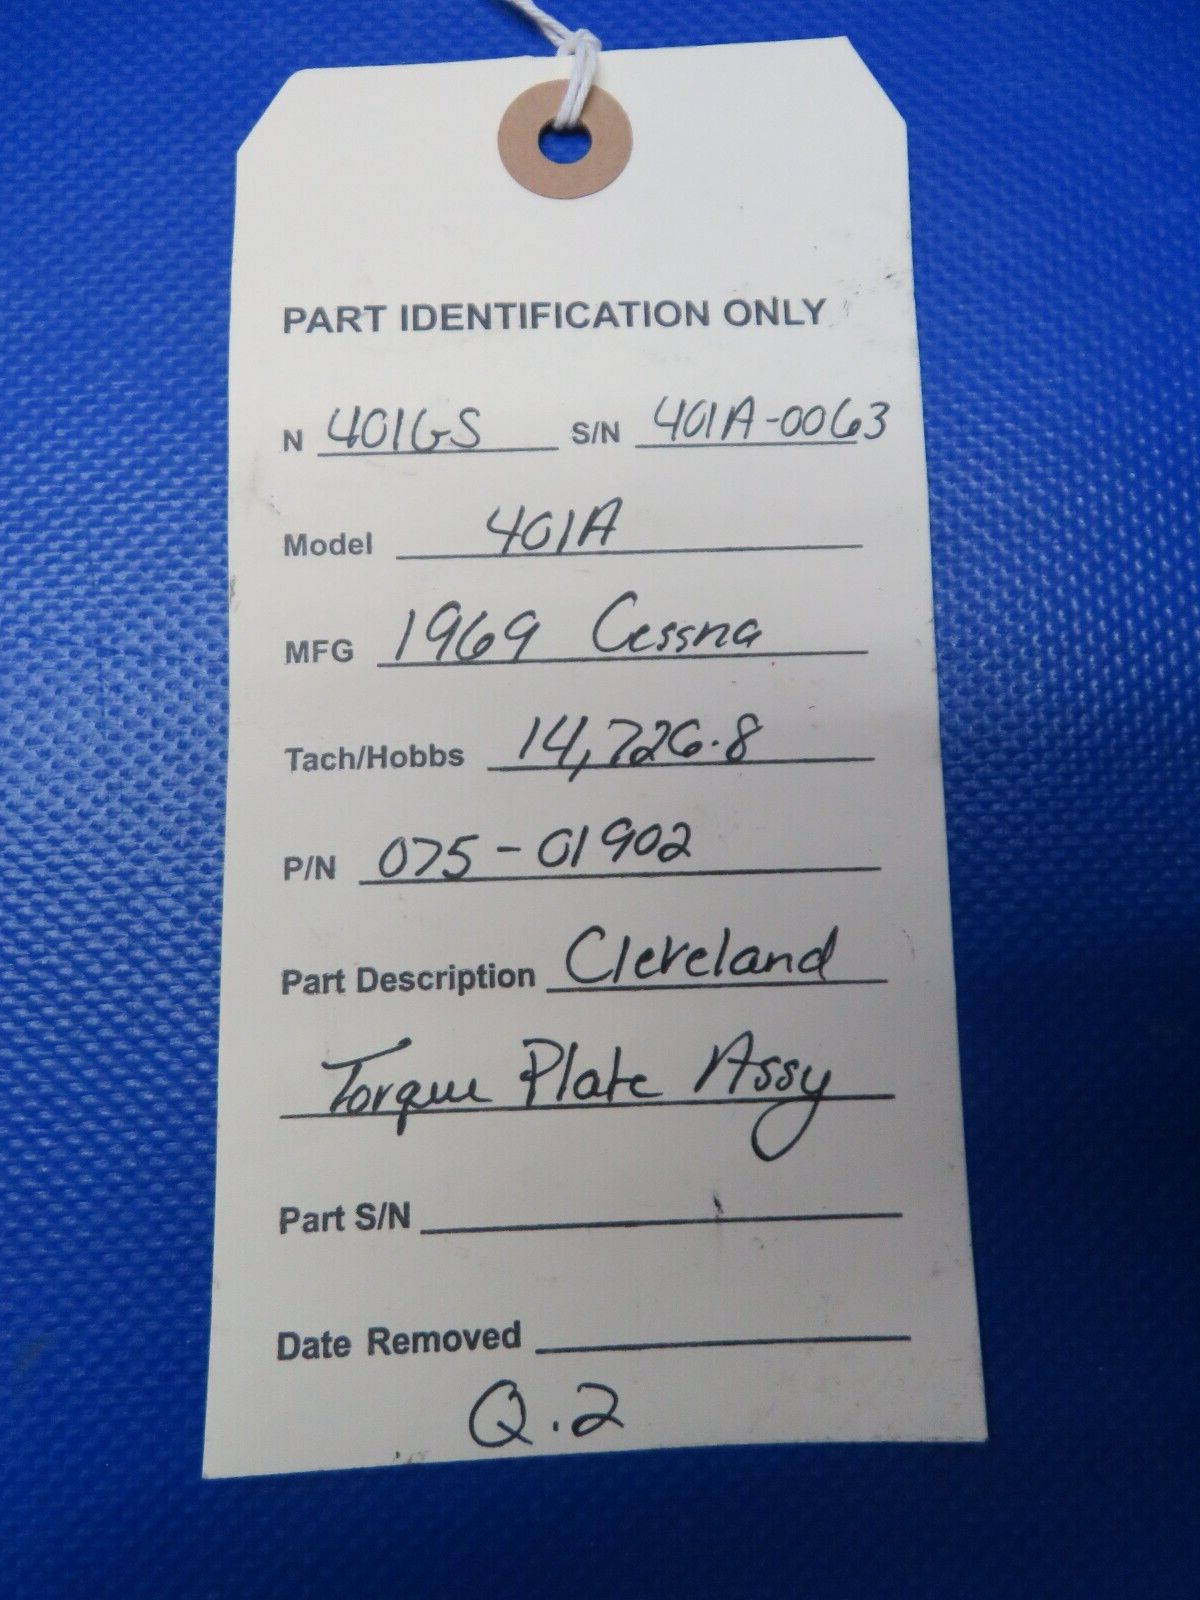 PART IDENTIFICATION ONLY
N 401GS S/N 401A-0063
Model 401A
MFG 1969 Cessna
Tach/Hobbs 14,726.8
P/N 075-01902
Part Description Cleveland
Torque Plate Assy
Part S/N
Date Removed
Q.2